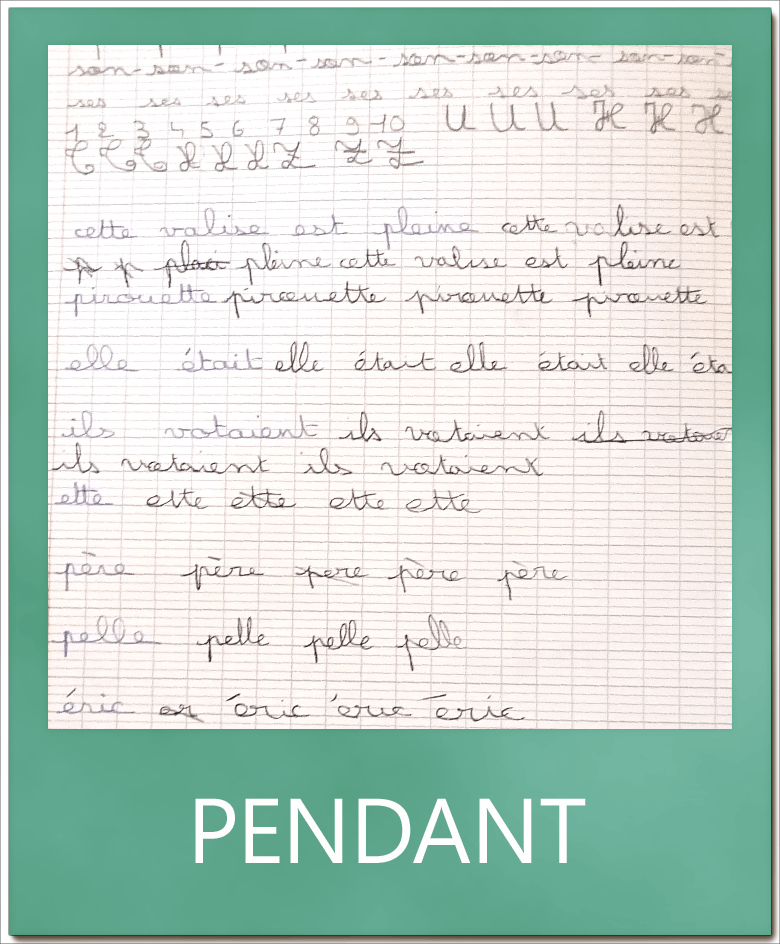 son-son-son-son-son-son-son-son-son
ses ses ses ses ses ses ses ses ses
1 2 3 4 5 6 7 8 9 10 U U U H H H
Z Z Z
cette valise est pleine cette valise est
pleine cette valise est pleine
pirouette pirouette pirouette pirouette
elle était elle était elle était elle éta
ils votaient ils votaient ils
ils votaient ils votaient
ette ette ette ette ette
père père pere père père
pelle pelle pelle pelle
éric er éric éric éric
PENDANT